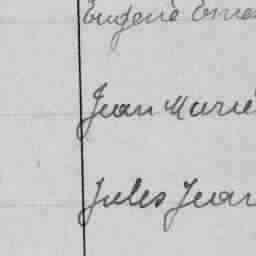 Eugène Erne
Jean Marie
Jules Jean